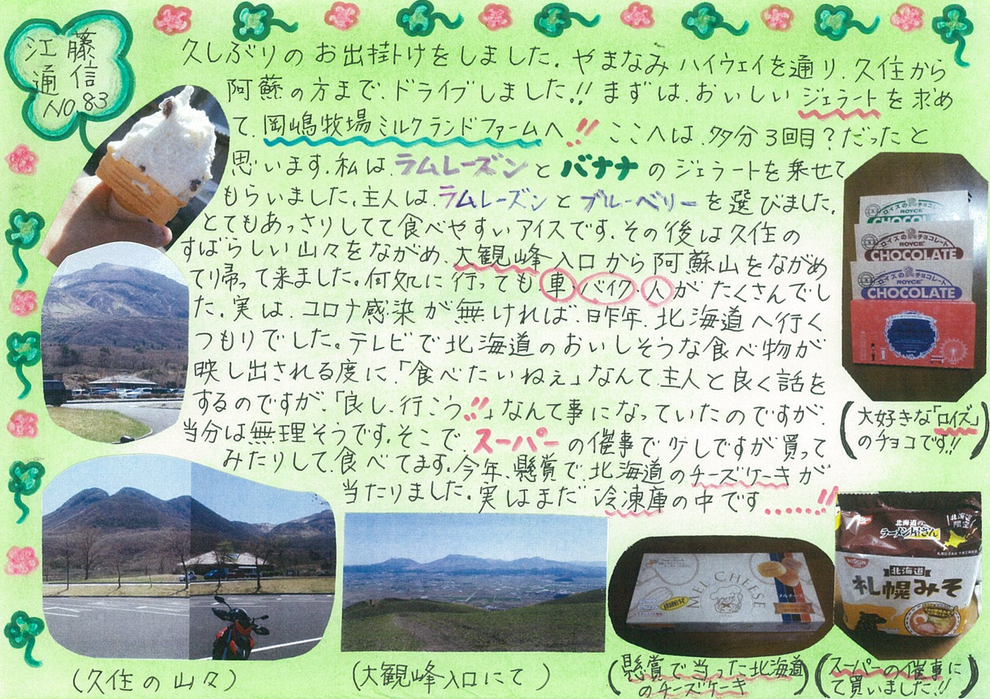 江藤
通信
NO.83
久しぶりのお出掛けをしました。やまなみハイウェイを通り、久住から
阿蘇の方まで、ドライブしました!!まずは、おいしいジェラートを求め
て、岡嶋牧場ミルクランドファームへ!!ここへは、多分3回目?だったと
思います。私は、ラムレーズンとバナナのジェラートを乗せて
もらいました。主人は、ラムレーズンとブルーベリーを選びました。
とてもあっさりしてて食べやすいアイスです。その後は久住の
すばらしい山々をながめ、大観峰入口から阿蘇山をながめ
てり帰って来ました。何処に行っても車・バイク・人がたくさんでし
た。実は、コロナ感染が無ければ、昨年、北海道へ行く
つもりでした。テレビで北海道のおいしそうな食べ物が
映し出される度に、「食べたいねぇ」なんて、主人と良く話を
するのですが、「良し、行こう!!」なんて事になっていたのですが、
当分は無理そうです。そこで、スーパーの催事で少しですが買って
みたりして、食べてます。今年、懸賞で、北海道のチーズケーキが
当たりました。実はまだ冷凍庫の中です……!!
ROYCE'
CHOCOLATE
ロイズのチョコレート
ROYCE'
CHOCOLATE
ロイズのチョコレート
ROYCE'
CHOCOLATE
(大好きな「ロイズ」
のチョコです!!)
MEL CHEESE
北海道の
ラーメン屋さん
北海道
限定
北海道
札幌みそ
(久住の山々)
(大観峰入口にて)
(懸賞で当った北海道
のチーズケーキ)
(スーパーの催事に
て買いました!!)